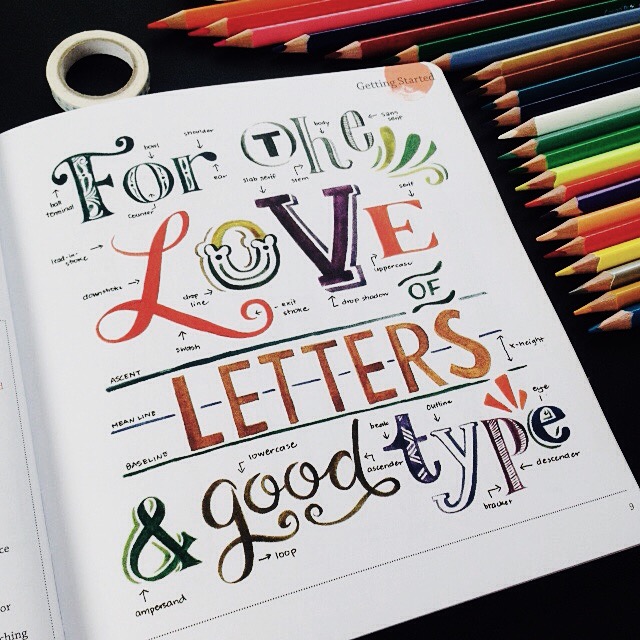 Getting Started
For The
bowl
shoulder
body
sans serif
ball terminal
counter
ear
slab serif
stem
LOVE
serif
lead-in stroke
downstroke
drop line
exit stroke
drop shadow
uppercase
swash
OF
ASCENT
LETTERS
x-height
MEAN LINE
BASELINE
& good type
lowercase
ascender
beak
outline
eye
descender
bracket
loop
ampersand
9
ce
or
ching